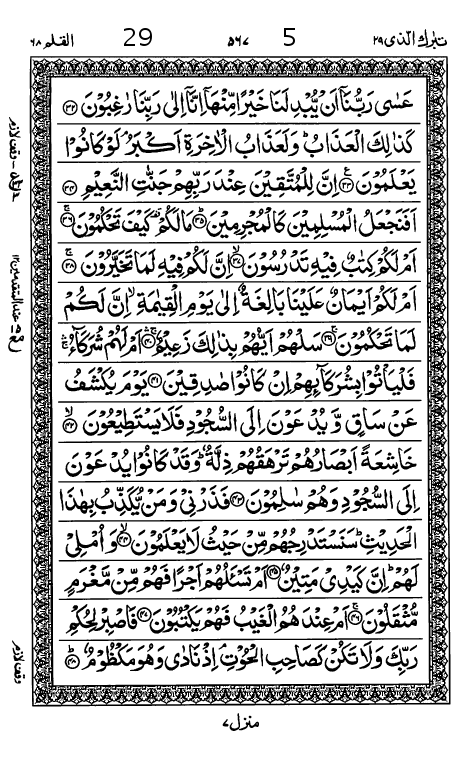 تبرك الذی ۲۹ 5 ۵۶۷ 29 القلم ۶۸
عَسٰى رَبُّنَاۤ اَنْ يُّبْدِلَنَا خَيْرًا مِّنْهَاۤ اِنَّاۤ اِلٰى رَبِّنَا رٰغِبُوْنَ ﴿۳۲﴾
كَذٰلِكَ الْعَذَابُ ؕ وَلَعَذَابُ الْاٰخِرَةِ اَكْبَرُ ۘ لَوْ كَانُوْا
يَعْلَمُوْنَ ﴿۳۳﴾ اِنَّ لِلْمُتَّقِيْنَ عِنْدَ رَبِّهِمْ جَنّٰتِ النَّعِيْمِ ﴿۳۴﴾
اَفَنَجْعَلُ الْمُسْلِمِيْنَ كَالْمُجْرِمِيْنَ ﴿۳۵﴾ مَا لَكُمْ كَيْفَ تَحْكُمُوْنَ ﴿۳۶﴾
اَمْ لَكُمْ كِتٰبٌ فِيْهِ تَدْرُسُوْنَ ﴿۳۷﴾ اِنَّ لَكُمْ فِيْهِ لَمَا تَخَيَّرُوْنَ ﴿۳۸﴾
اَمْ لَكُمْ اَيْمَانٌ عَلَيْنَا بَالِغَةٌ اِلٰى يَوْمِ الْقِيٰمَةِ ۙ اِنَّ لَكُمْ
لَمَا تَحْكُمُوْنَ ﴿۳۹﴾ سَلْهُمْ اَيُّهُمْ بِذٰلِكَ زَعِيْمٌ ﴿۴۰﴾ اَمْ لَهُمْ شُرَكَآءُ ۚ
فَلْيَاْتُوْا بِشُرَكَآئِهِمْ اِنْ كَانُوْا صٰدِقِيْنَ ﴿۴۱﴾ يَوْمَ يُكْشَفُ
عَنْ سَاقٍ وَّيُدْعَوْنَ اِلَى السُّجُوْدِ فَلَا يَسْتَطِيْعُوْنَ ﴿۴۲﴾
خَاشِعَةً اَبْصَارُهُمْ تَرْهَقُهُمْ ذِلَّةٌ ؕ وَقَدْ كَانُوْا يُدْعَوْنَ
اِلَى السُّجُوْدِ وَهُمْ سٰلِمُوْنَ ﴿۴۳﴾ فَذَرْنِيْ وَمَنْ يُّكَذِّبُ بِهٰذَا
الْحَدِيْثِ ؕ سَنَسْتَدْرِجُهُمْ مِّنْ حَيْثُ لَا يَعْلَمُوْنَ ﴿۴۴﴾ وَاُمْلِيْ
لَهُمْ ؕ اِنَّ كَيْدِيْ مَتِيْنٌ ﴿۴۵﴾ اَمْ تَسْـَٔلُهُمْ اَجْرًا فَهُمْ مِّنْ مَّغْرَمٍ
مُّثْقَلُوْنَ ﴿۴۶﴾ اَمْ عِنْدَهُمُ الْغَيْبُ فَهُمْ يَكْتُبُوْنَ ﴿۴۷﴾ فَاصْبِرْ لِحُكْمِ
رَبِّكَ وَلَا تَكُنْ كَصَاحِبِ الْحُوْتِ ۘ اِذْ نَادٰى وَهُوَ مَكْظُوْمٌ ﴿۴۸﴾
وقف لازم
منزل ۷